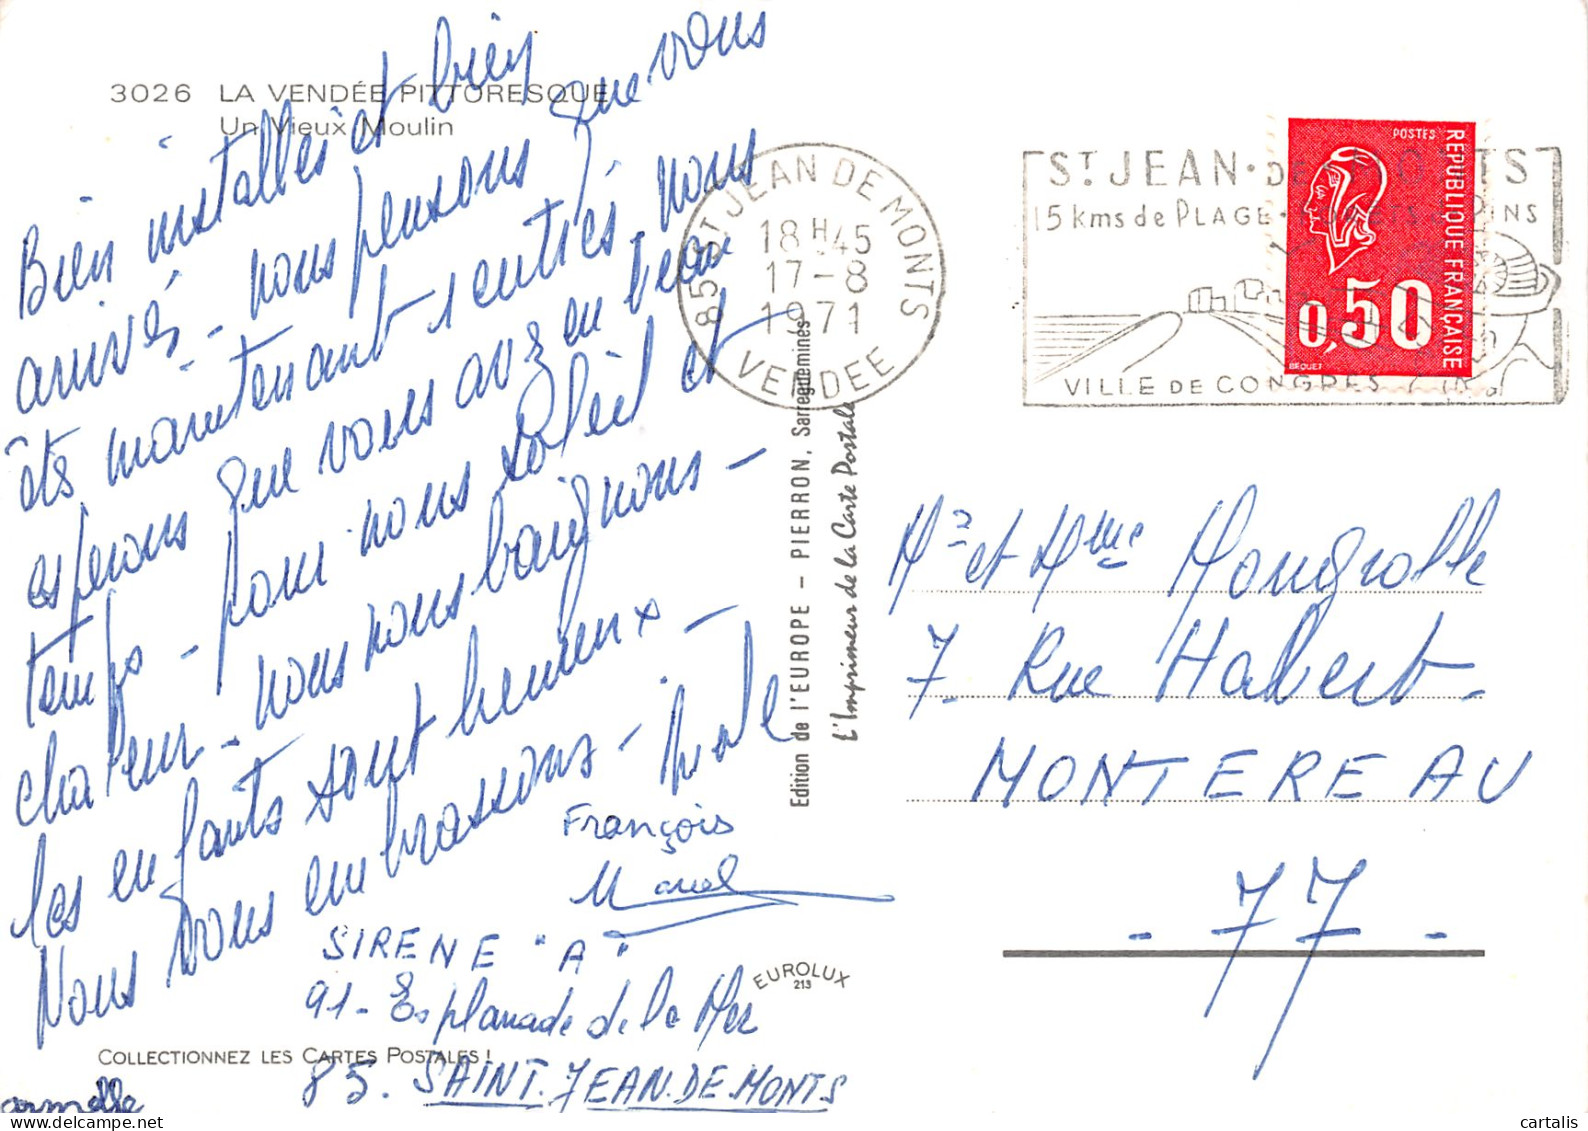 3026 LA VENDÉE PITTORESQUE
Un Vieux Moulin
Bien installés et bien
arrivés - nous pensons que vous
êts maintenant rentrés. nous
esperons que vous avez eu beau
temps - pour nous soleil et
chaleur - nous nous baignons -
les enfants sont heureux -
Nous vous embrassons -
François
SIRENE "A"
91 - Esplanade de la Mer
85. SAINT. JEAN. DE. MONTS
armelle
COLLECTIONNEZ LES CARTES POSTALES !
EUROLUX
213
Edition de l'EUROPE - PIERRON, Sarreguemines
L'Imprimeur de la Carte Postale
85 ST JEAN DE MONTS
18H45
17-8
1971
VENDEE
ST JEAN · DE MONTS
15 kms de PLAGE
VILLE DE CONGRES
POSTES
REPUBLIQUE FRANÇAISE
0,50
BEQUET
Mr et Mme Mougrolle
7. Rue Habert.
MONTEREAU
- 77 -
cartalis
www.delcampe.net